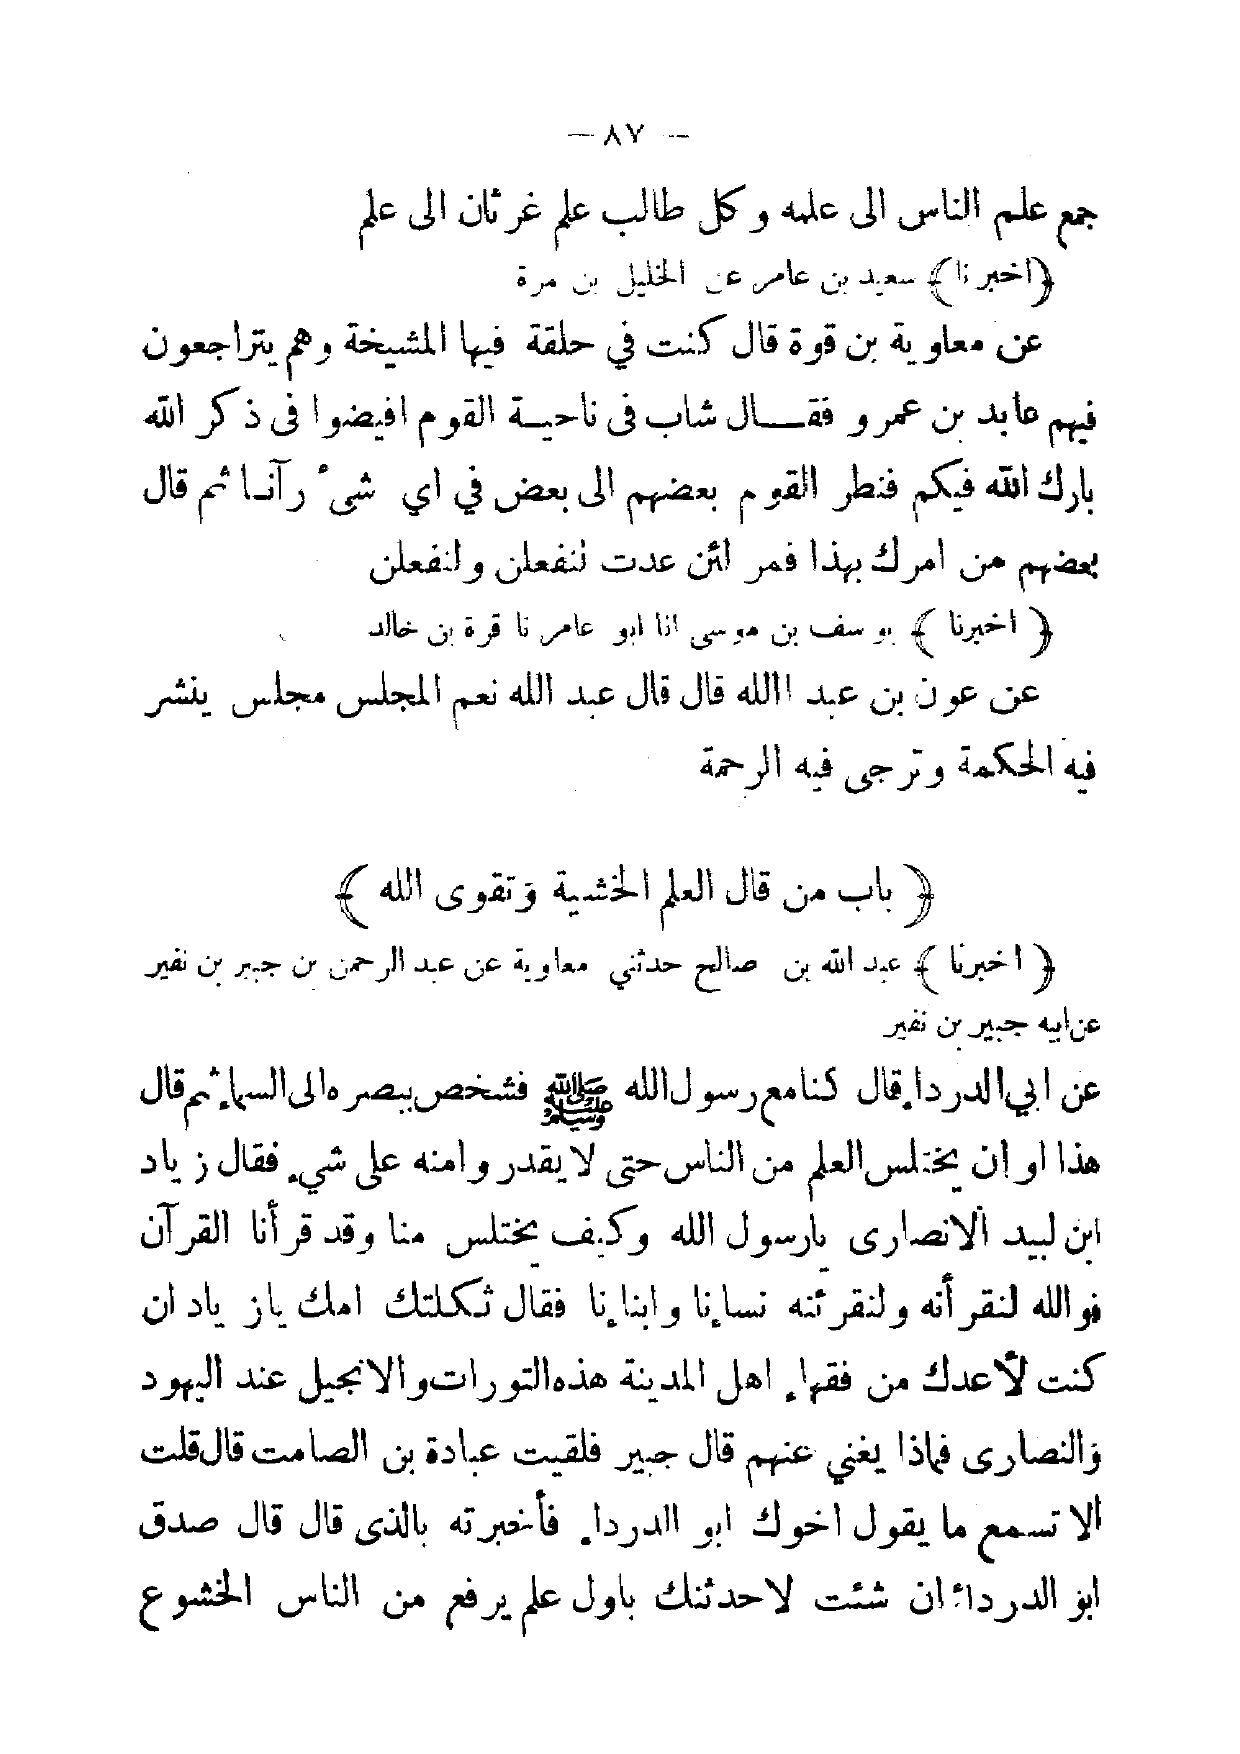 — ٨٧ —
جمع علم الناس الى علمه وكل طالب علم غرثان الى علم
﴿اخبرنا﴾ سعيد بن عامر عن الخليل بن مرة
عن معاوية بن قوة قال كنت في حلقة فيها المشيخة وهم يتراجعون
فيهم عابد بن عمرو فقال شاب فى ناحية القوم افيضوا فى ذكر الله
بارك الله فيكم فنظر القوم بعضهم الى بعض في اي شىء رآنا ثم قال
بعضهم من امرك بهذا فمر لئن عدت لنفعلن ولنفعلن
﴿ اخبرنا ﴾ يوسف بن موسى انا ابو عامر نا قرة بن خالد
عن عون بن عبد االله قال قال عبد الله نعم المجلس مجلس ينشر
فيه الحكمة وترجى فيه الرحمة
﴿ باب من قال العلم الخشية وتقوى الله ﴾
﴿ اخبرنا ﴾ عبد الله بن صالح حدثني معاوية عن عبد الرحمن بن جبير بن نفير
عن ابيه جبير بن نفير
عن ابي الدرداء قال كنا مع رسول الله ﷺ فشخص ببصره الى السماء ثم قال
هذا اوان يختلس العلم من الناس حتى لا يقدروا منه على شيء فقال زياد
ابن لبيد الانصارى يارسول الله وكيف يختلس منا وقد قرأنا القرآن
فوالله لنقرأنه ولنقرئنه نساءنا وابناءنا فقال ثكلتك امك يازياد ان
كنت لأعدك من فقهاء اهل المدينة هذه التورات والانجيل عند اليهود
والنصارى فماذا يغني عنهم قال جبير فلقيت عبادة بن الصامت قال قلت
الا تسمع ما يقول اخوك ابو الدرداء فأخبرته بالذى قال قال صدق
ابو الدرداء ان شئت لاحدثنك باول علم يرفع من الناس الخشوع